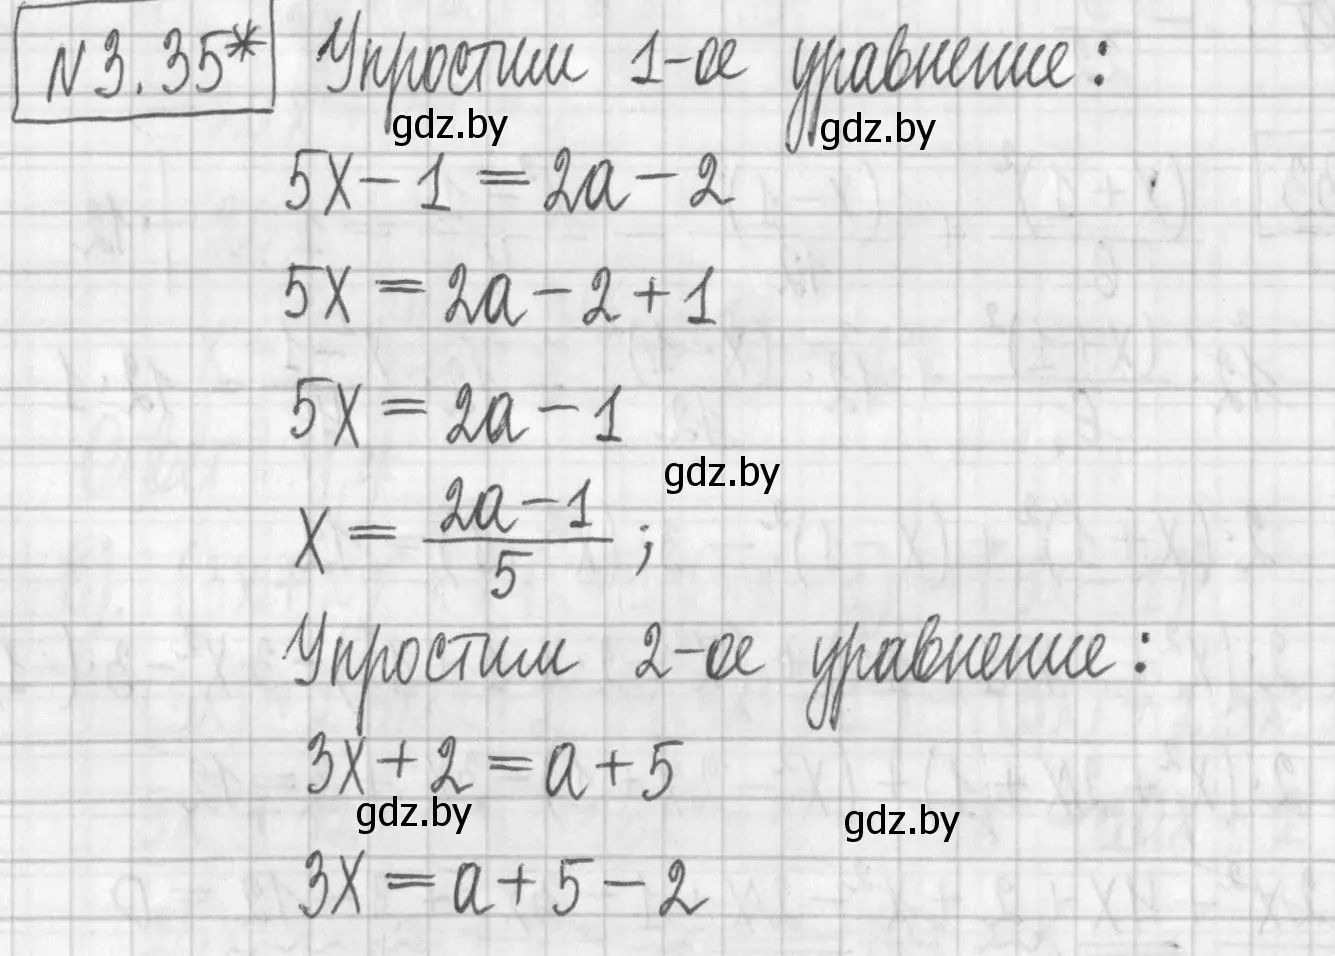 N 3.35* Упростим 1-ое уравнение:
gdz.by gdz.by
5x - 1 = 2a - 2
5x = 2a - 2 + 1
5x = 2a - 1
gdz.by
x = (2a - 1)/5 ;
Упростим 2-ое уравнение:
3x + 2 = a + 5
gdz.by gdz.by
3x = a + 5 - 2